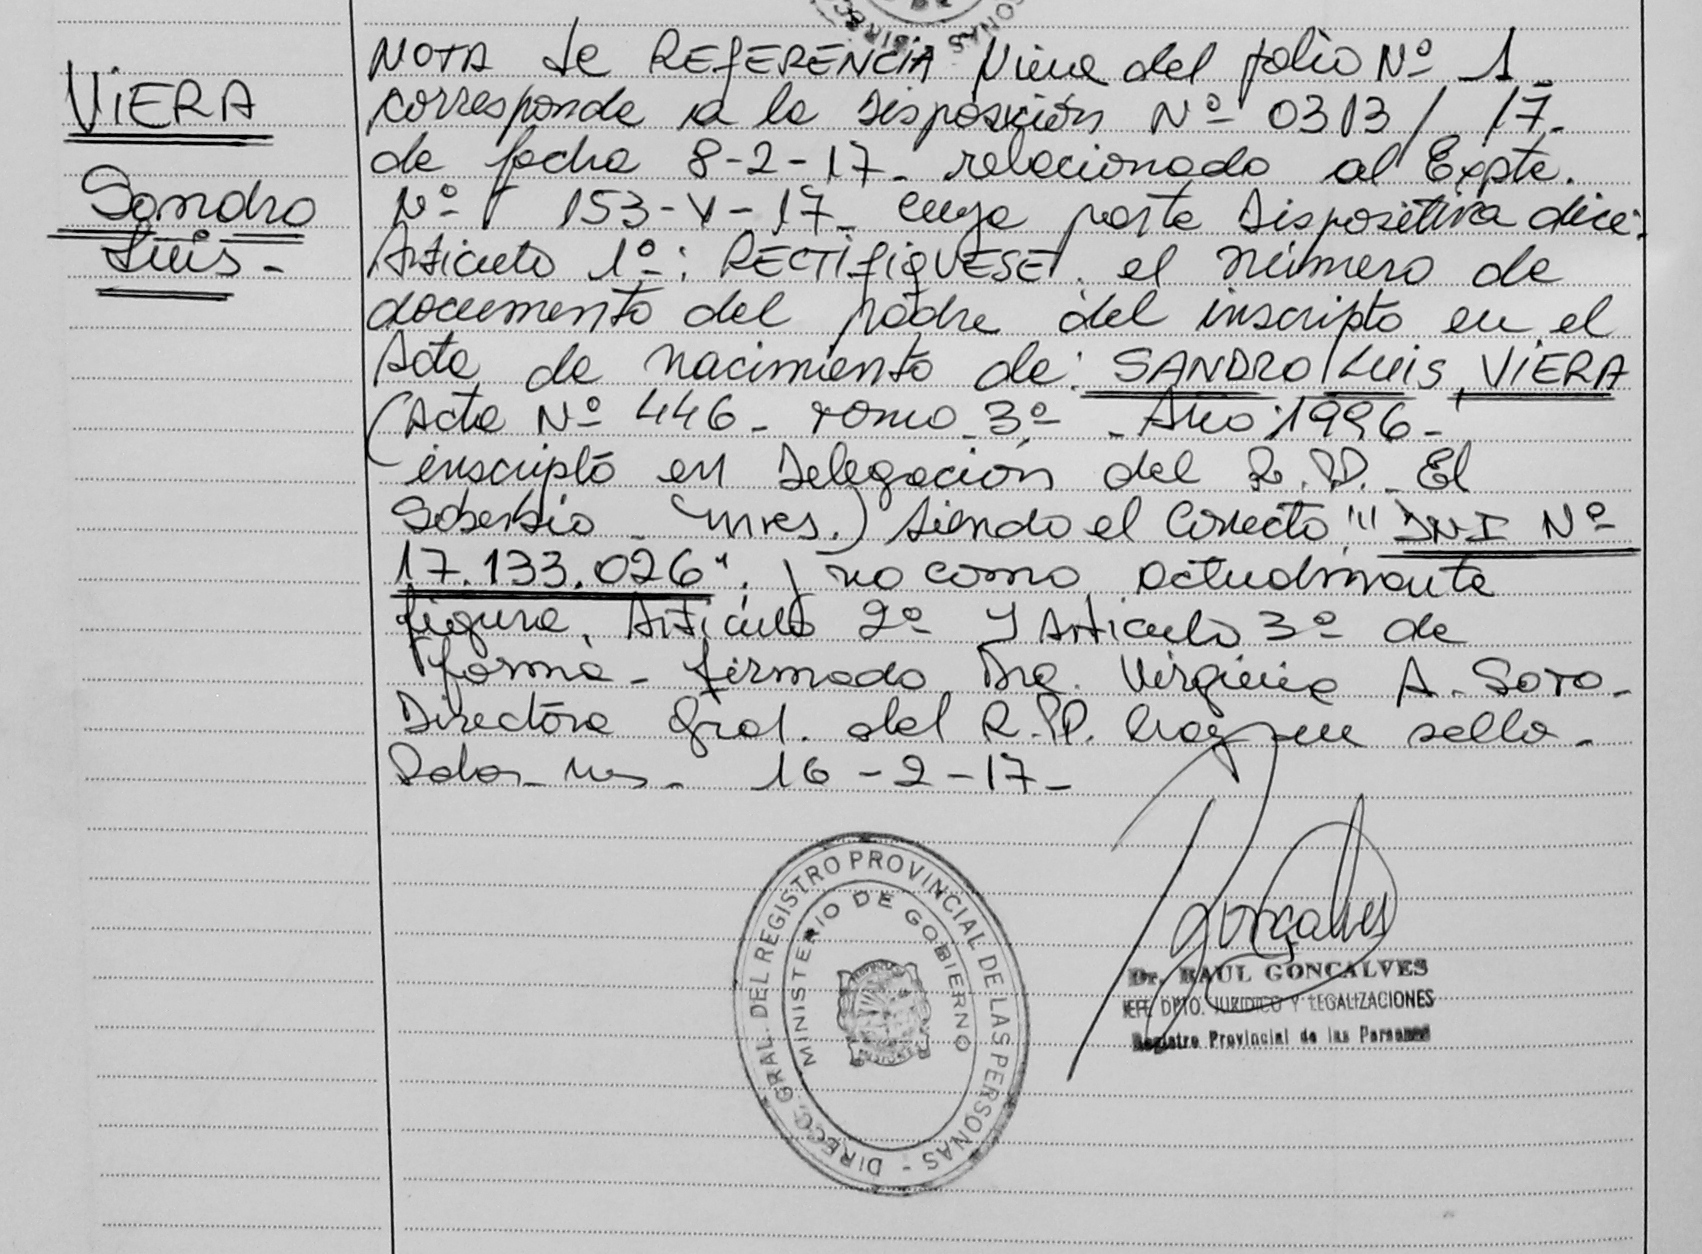 VIERA
Sandro
Luis-
NOTA de REFERENCIA Viene del folio Nº 1-
corresponde a la Disposición Nº 0313/17-
de fecha 8-2-17- relacionado al Expte.
Nº 153-V-17- cuya parte Dispositiva dice:
Articulo 1º: RECTIFIQUESE el número de
documento del padre del inscripto en el
Acta de nacimiento de: SANDRO LUIS VIERA
(Acta Nº 446- Tomo 3º - Año 1996-
inscripto en Delegación del R.PP. El
Soberbio - Mnes.) siendo el correcto "DNI Nº
17.133.026" y no como actualmente
figura. Artículo 2º y Articulo 3º de
forma- firmado Virginia A. Soto-
Directora Gral. del R.PP. Hay un sello-
16-2-17-
Gonçalves
Dr. RAUL GONCALVES
JEFE DPTO. JURIDICO Y LEGALIZACIONES
Registro Provincial de las Personas
DIRECC. GRAL. DEL REGISTRO PROVINCIAL DE LAS PERSONAS -
MINISTERIO DE GOBIERNO